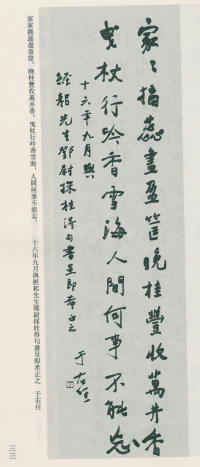 家〻摘蕊盡盈筐晚桂豐收萬井香
曳杖行吟香雪海人間何事不能忘
十六年九月與
經韜先生鄧尉探桂得句書呈即希正之
于右任
家家摘蕊盡盈筐,晚桂豐收萬井香,曳杖行吟香雪海,人間何事不能忘。 十六年九月與經韜先生鄧尉探桂得句書呈即希正之 于右任